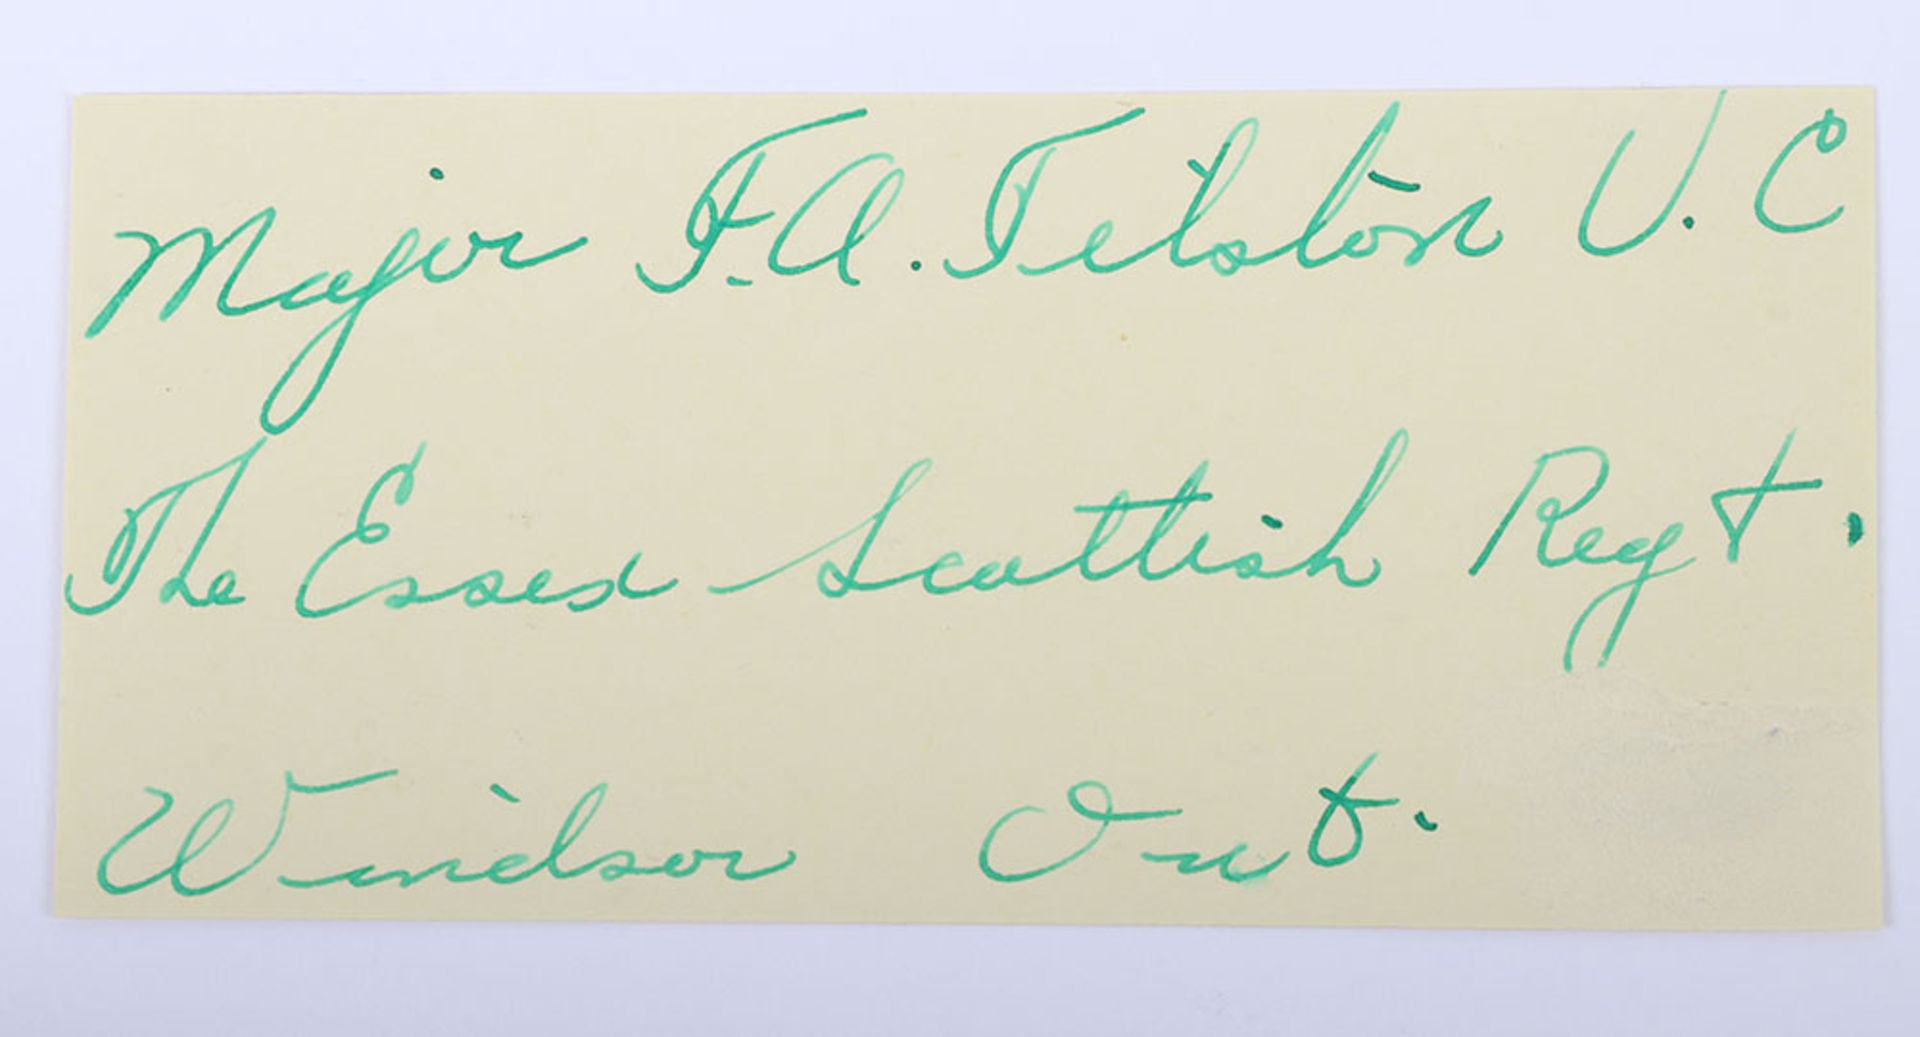 Major F.A. Tilston V.C
The Essex Scottish Regt.
Windsor Ont.